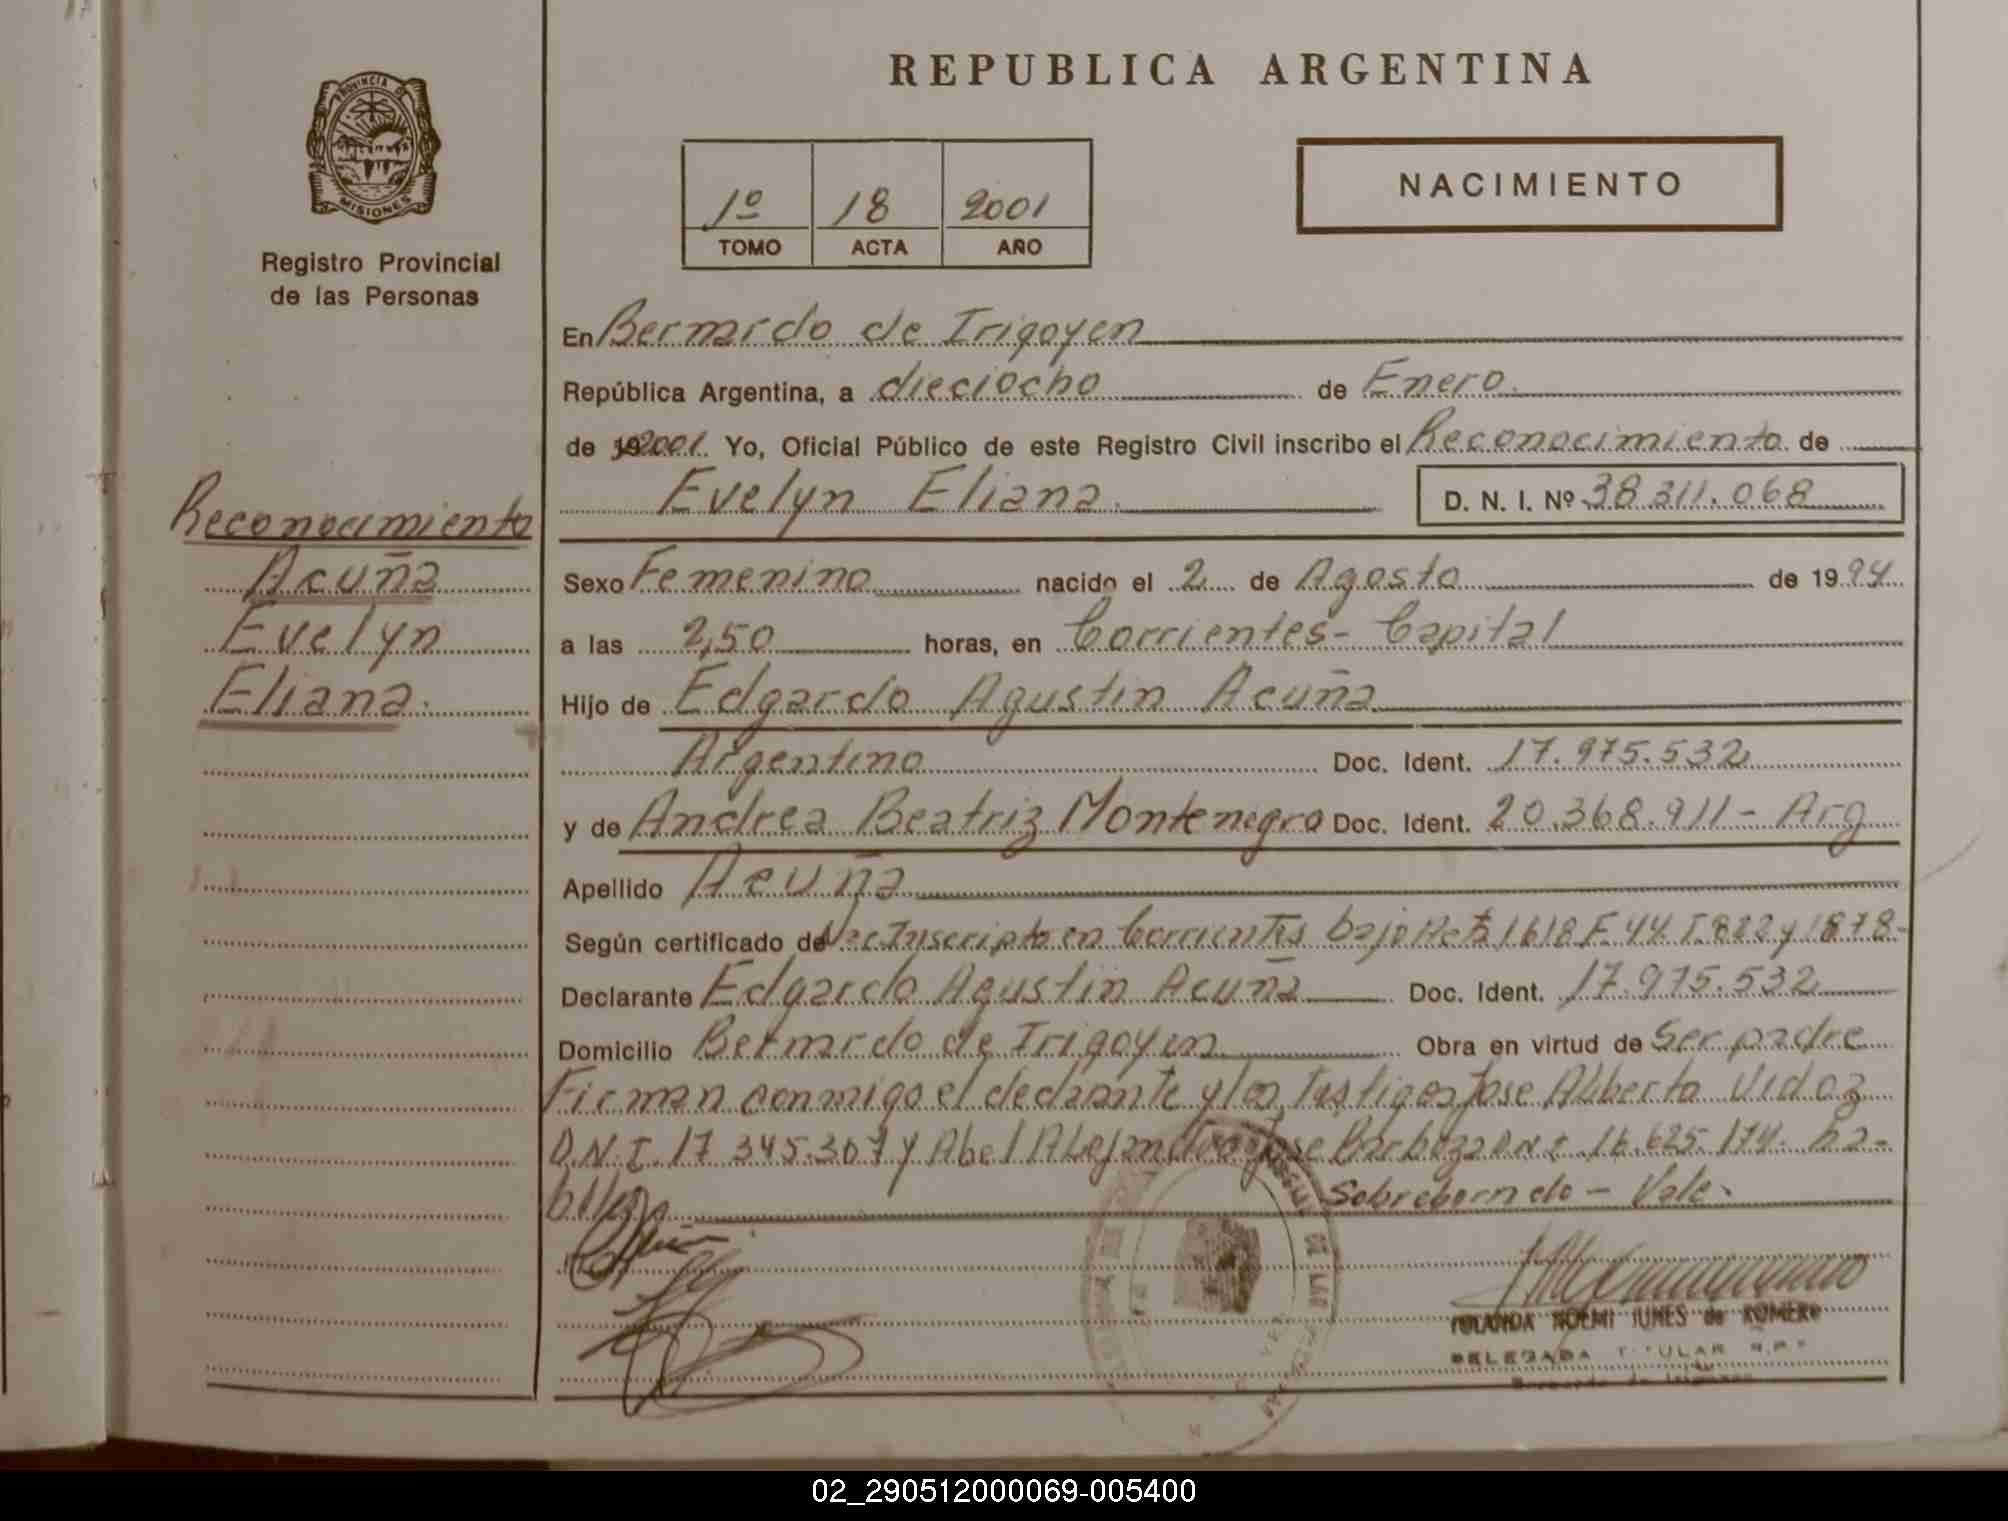 PROVINCIA DE
MISIONES
Registro Provincial
de las Personas
Reconocimiento
Acuña
Evelyn
Eliana.
REPUBLICA ARGENTINA
1º 18 2001
TOMO ACTA AÑO
NACIMIENTO
En Bernardo de Irigoyen
República Argentina, a dieciocho de Enero.
de 19 2001. Yo, Oficial Público de este Registro Civil inscribo el Reconocimiento de
Evelyn Eliana. D. N. I. Nº 38.311.068
Sexo Femenino nacido el 2 de Agosto de 1994
a las 2,50 horas, en Corrientes- Capital
Hijo de Edgardo Agustin Acuña
Argentino Doc. Ident. 17.975.532
y de Andrea Beatriz Montenegro Doc. Ident. 20.368.911- Arg
Apellido Acuña
Según certificado de Nac Inscripto en Corrientes bajo Acta 1618 F. 44 T. 822 y 1878-
Declarante Edgardo Agustin Acuña Doc. Ident. 17.975.532
Domicilio Bernardo de Irigoyen Obra en virtud de Ser padre
Firman conmigo el declarante y los Testigos Jose Alberto Vidoz
D.N.I. 17 345.307 y Abel Alejandro Jose Barboza D N I 16.625.174. ha-
biles Sobreborrado - Vale.
YOLANDA NOEMI JUNES de ROMERO
DELEGADA TITULAR R.P.
Bernardo de Irigoyen
02_290512000069-005400